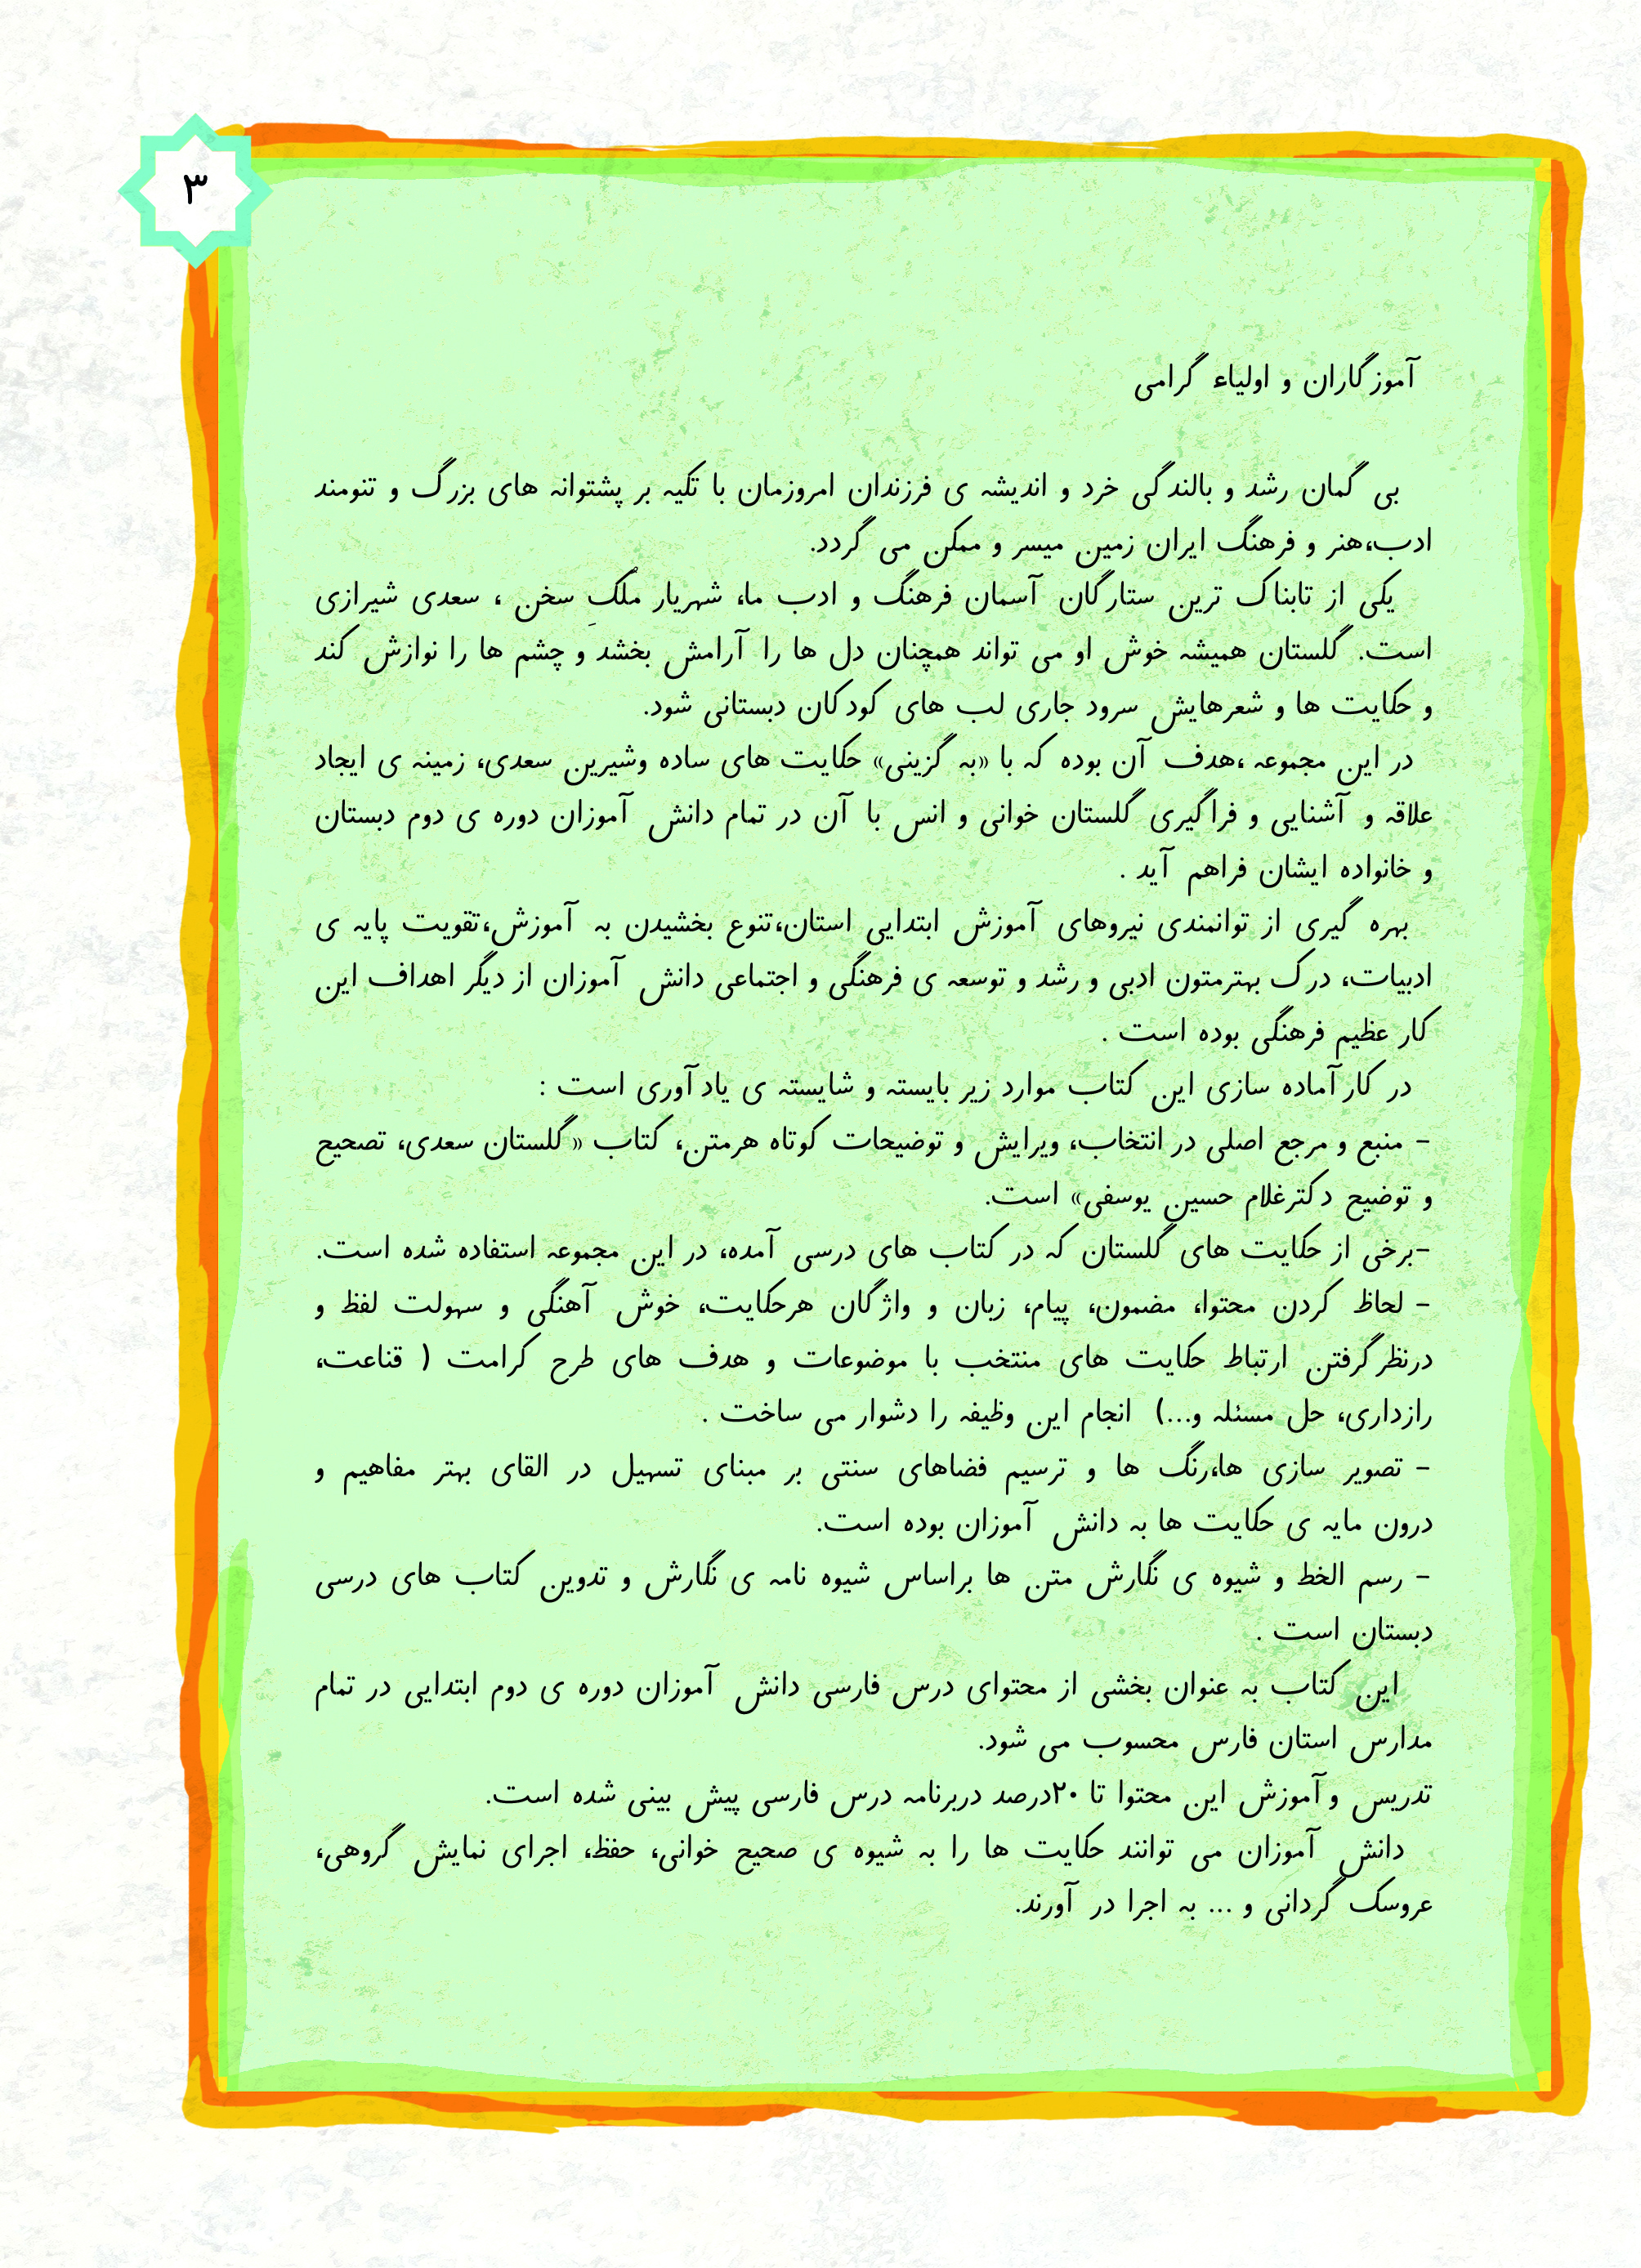 ۳
آموزگاران و اولیاء گرامی
بی گمان رشد و بالندگی خرد و اندیشه ی فرزندان امروزمان با تکیه بر پشتوانه های بزرگ و تنومند
ادب،هنر و فرهنگ ایران زمین میسر و ممکن می گردد.
یکی از تابناک ترین ستارگان آسمان فرهنگ و ادب ما، شهریار مُلکِ سخن ، سعدی شیرازی
است. گلستان همیشه خوش او می تواند همچنان دل ها را آرامش بخشد و چشم ها را نوازش کند
و حکایت ها و شعرهایش سرود جاری لب های کودکان دبستانی شود.
در این مجموعه ،هدف آن بوده که با «به گزینی» حکایت های ساده وشیرین سعدی، زمینه ی ایجاد
علاقه و آشنایی و فراگیری گلستان خوانی و انس با آن در تمام دانش آموزان دوره ی دوم دبستان
و خانواده ایشان فراهم آید .
بهره گیری از توانمندی نیروهای آموزش ابتدایی استان،تنوع بخشیدن به آموزش،تقویت پایه ی
ادبیات، درک بهترمتون ادبی و رشد و توسعه ی فرهنگی و اجتماعی دانش آموزان از دیگر اهداف این
کار عظیم فرهنگی بوده است .
در کار آماده سازی این کتاب موارد زیر بایسته و شایسته ی یاد آوری است :
- منبع و مرجع اصلی در انتخاب، ویرایش و توضیحات کوتاه هرمتن، کتاب «گلستان سعدی، تصحیح
و توضیح دکترغلام حسین یوسفی» است.
-برخی از حکایت های گلستان که در کتاب های درسی آمده، در این مجموعه استفاده شده است.
- لحاظ کردن محتوا، مضمون، پیام، زبان و واژگان هرحکایت، خوش آهنگی و سهولت لفظ و
درنظر گرفتن ارتباط حکایت های منتخب با موضوعات و هدف های طرح کرامت ( قناعت،
رازداری، حل مسئله و...) انجام این وظیفه را دشوار می ساخت .
- تصویر سازی ها،رنگ ها و ترسیم فضاهای سنتی بر مبنای تسهیل در القای بهتر مفاهیم و
درون مایه ی حکایت ها به دانش آموزان بوده است.
- رسم الخط و شیوه ی نگارش متن ها براساس شیوه نامه ی نگارش و تدوین کتاب های درسی
دبستان است .
این کتاب به عنوان بخشی از محتوای درس فارسی دانش آموزان دوره ی دوم ابتدایی در تمام
مدارس استان فارس محسوب می شود.
تدریس و آموزش این محتوا تا ۲۰درصد دربرنامه درس فارسی پیش بینی شده است.
دانش آموزان می توانند حکایت ها را به شیوه ی صحیح خوانی، حفظ، اجرای نمایش گروهی،
عروسک گردانی و ... به اجرا در آورند.